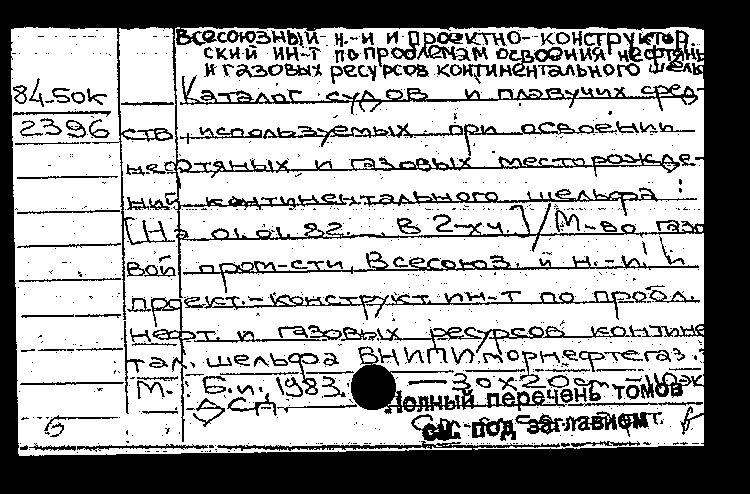 Всесоюзный н.-и и проектно-конструктор
ский ин-т по проблемам освоения нефтяны
и газовых ресурсов континентального шель
84-50к
Каталог судов и плавучих сред-
2396
ств, используемых при освоении
нефтяных и газовых месторожде-
ний континентального шельфа :
[На 01.01.82. В 2-х ч.] / М-во газо
вой пром-сти, Всесоюз. н.-и. и
проект.-конструкт. ин-т по пробл.
нефт. и газовых ресурсов контине
тал. шельфа ВНИПИморнефтегаз. -
М. : Б.и., 1983. — 30х20см.
Полный перечень томов
см. под заглавием